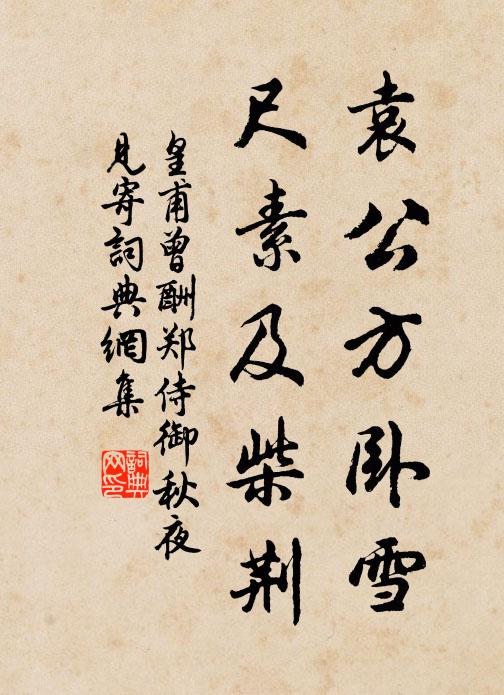 袁公方卧雪
尺素及柴荆
皇甫曾酬郑侍御秋夜
見寄詞典網集
詞典网印